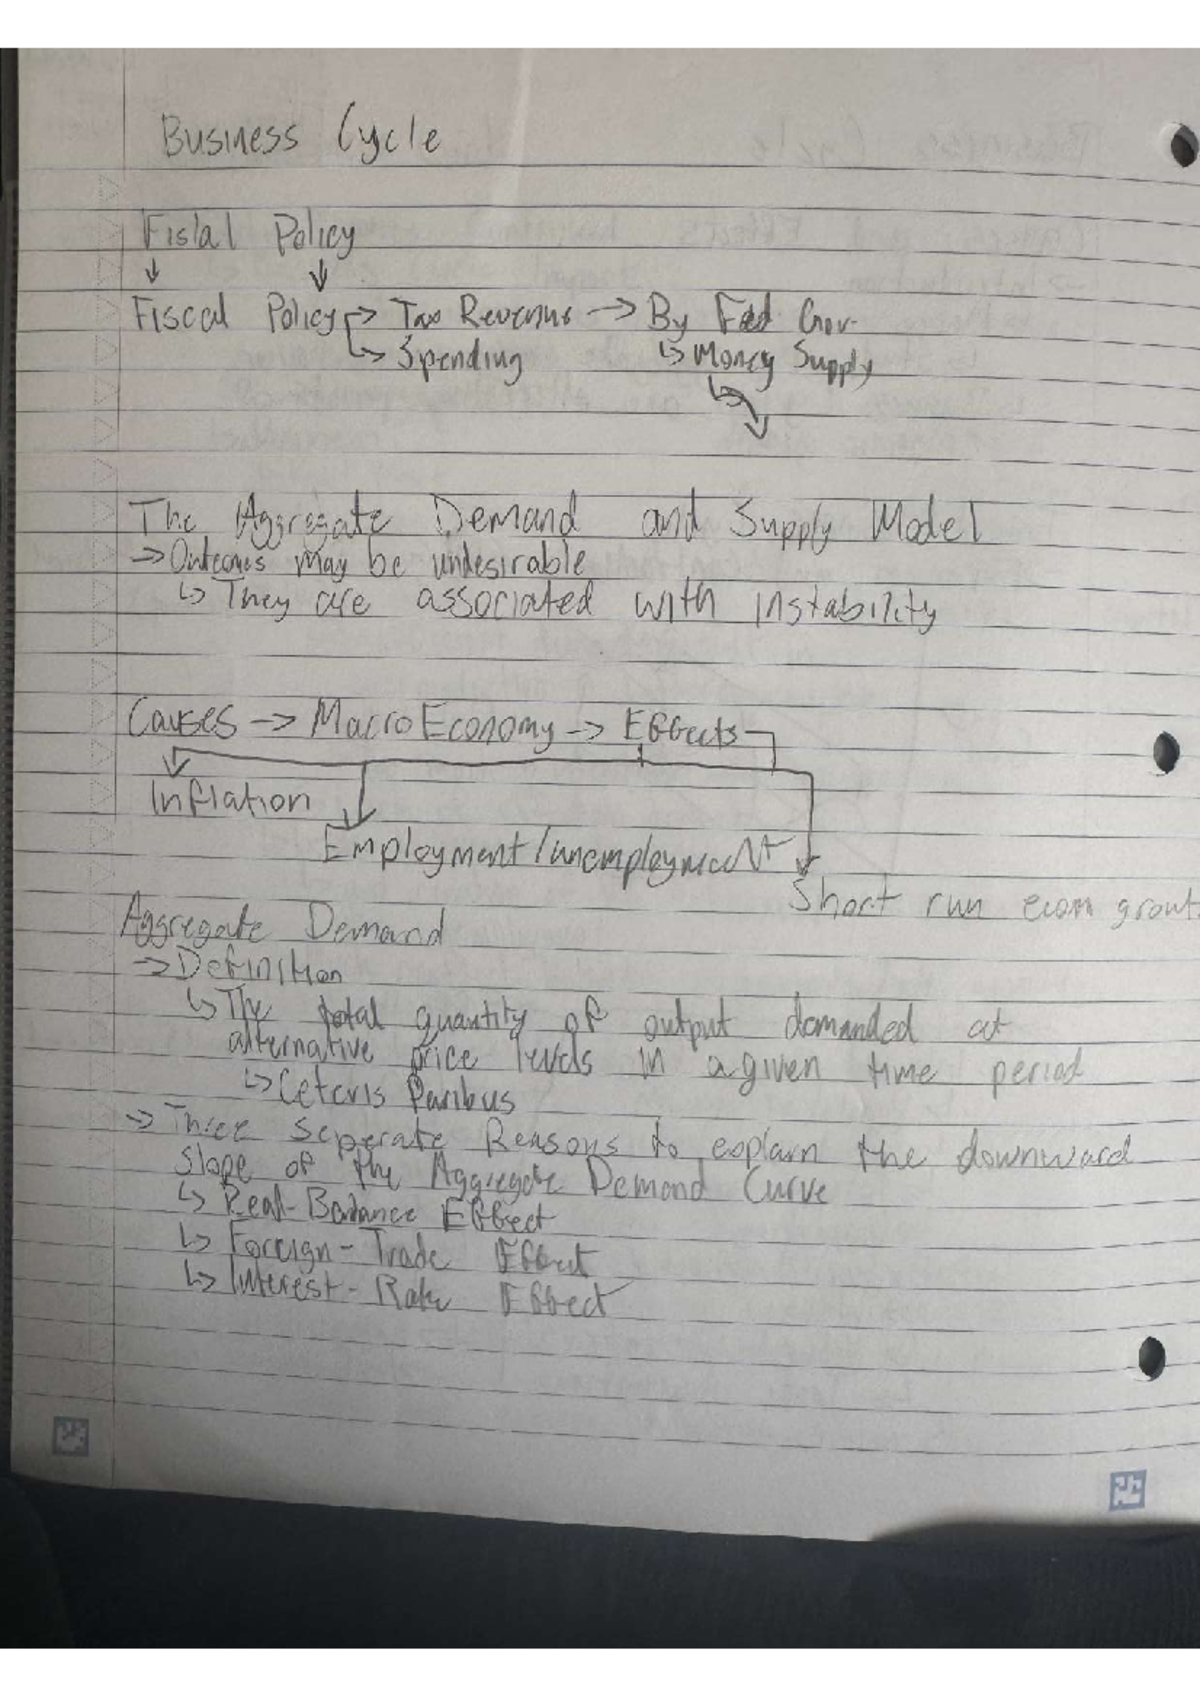 Business Cycle
Fislal Policy
↓ ↓
Fiscal Policy → Tax Revenue → By Fed Gov.
↳ Spending ↳ Money Supply
The Aggregate Demand and Supply Model
→ Outcomes may be undesirable
↳ They are associated with instability
Causes → Macro Economy → Effects
Inflation
Employment/unemployment
Short run econ growt
Aggregate Demand
→ Definition
↳ The total quantity of output demanded at
alternative price levels in a given time period
↳ Ceteris Paribus
→ Three seperate Reasons to explain the downward
slope of the Aggregate Demand Curve
↳ Real-Balance Effect
↳ Foreign-Trade Effect
↳ Interest-Rate Effect